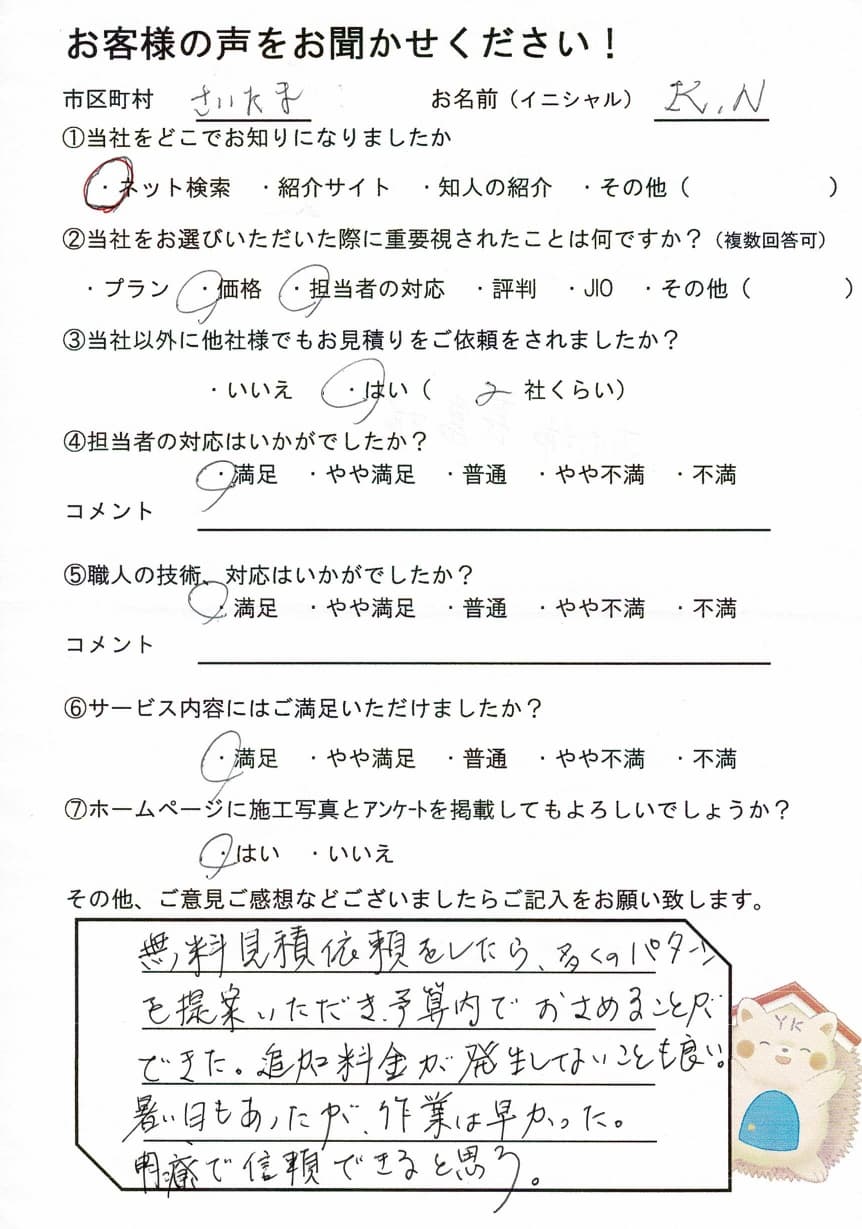 お客様の声をお聞かせください！
市区町村 さいたま お名前（イニシャル） K.N
①当社をどこでお知りになりましたか
・ネット検索 ・紹介サイト ・知人の紹介 ・その他（ ）
②当社をお選びいただいた際に重要視されたことは何ですか？（複数回答可）
・プラン ・価格 ・担当者の対応 ・評判 ・JIO ・その他（ ）
③当社以外に他社様でもお見積りをご依頼をされましたか？
・いいえ ・はい（ 2 社くらい）
④担当者の対応はいかがでしたか？
・満足 ・やや満足 ・普通 ・やや不満 ・不満
コメント
⑤職人の技術、対応はいかがでしたか？
・満足 ・やや満足 ・普通 ・やや不満 ・不満
コメント
⑥サービス内容にはご満足いただけましたか？
・満足 ・やや満足 ・普通 ・やや不満 ・不満
⑦ホームページに施工写真とｱﾝｹｰﾄを掲載してもよろしいでしょうか？
・はい ・いいえ
その他、ご意見ご感想などございましたらご記入をお願い致します。
無料見積依頼をしたら、多くのパターン
を提案いただき、予算内でおさめることが
できた。追加料金が発生してないことも良い。
暑い日もあったが、作業は早かった。
で信頼できると思う。
YK